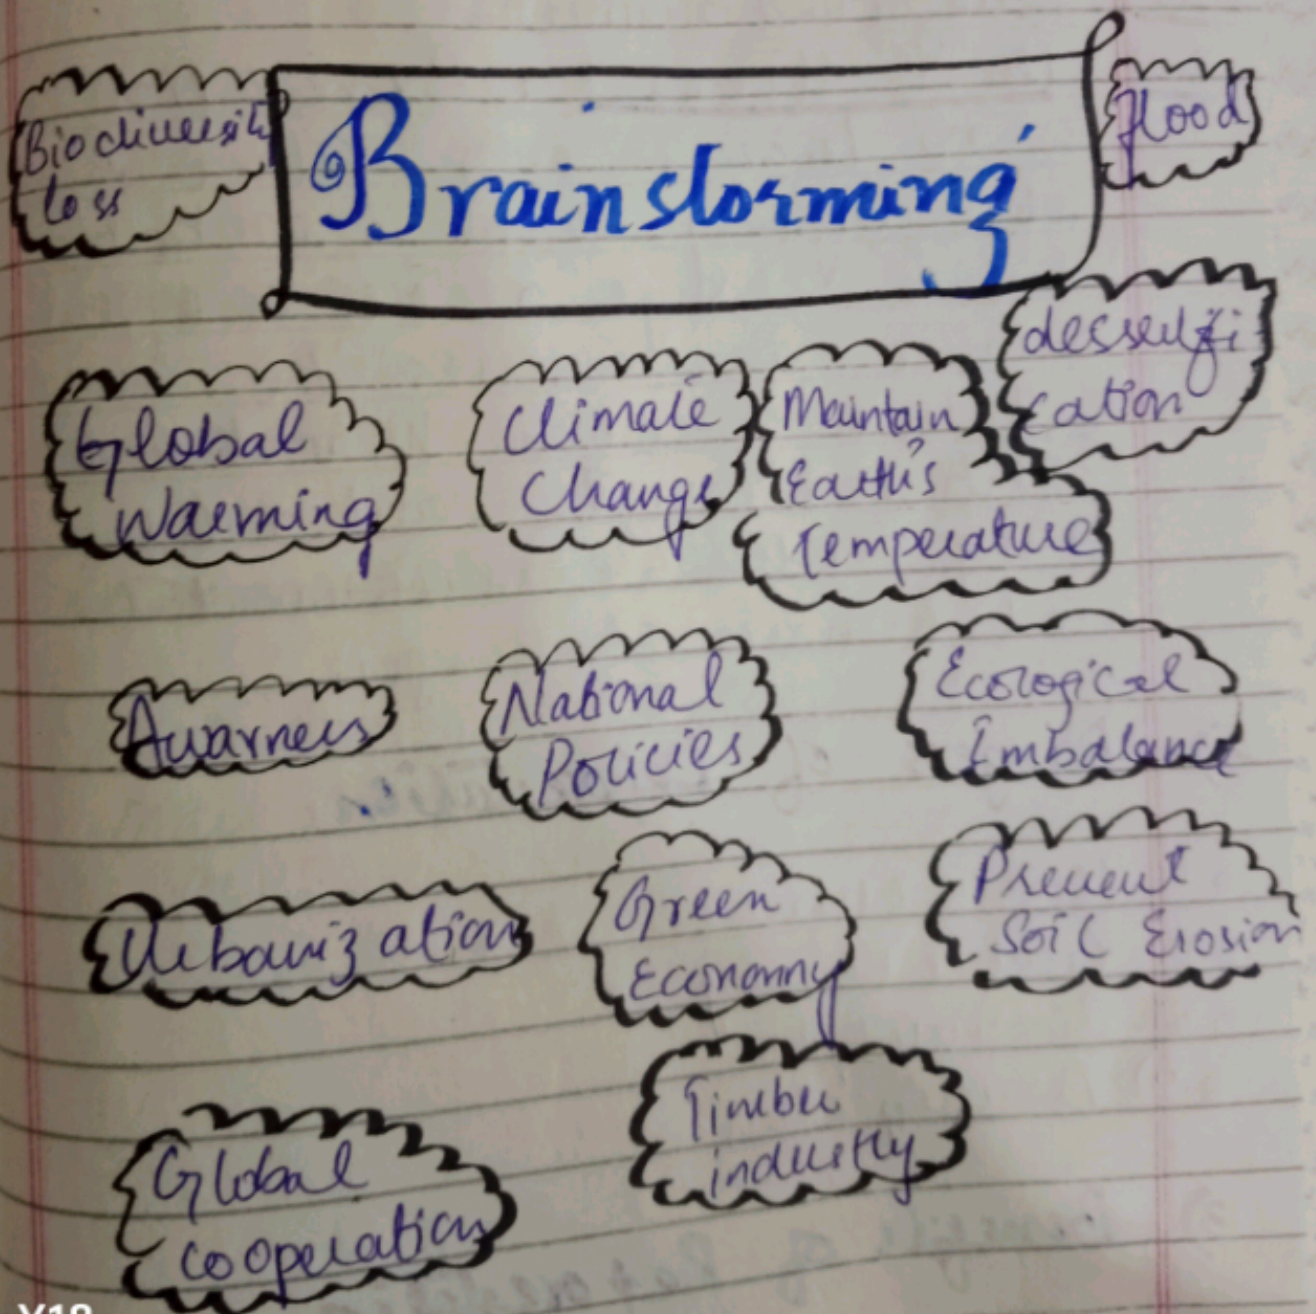 Biodiversity
loss
Brainstorming
Flood
Global
Warming
Climate
Change
Maintain
Earth's
Temperature
dessertifi
cation
Awarness
National
Policies
Ecological
Imbalance
Urbanization
Green
Economy
Prevent
Soil Erosion
Timber
industry
Global
cooperation